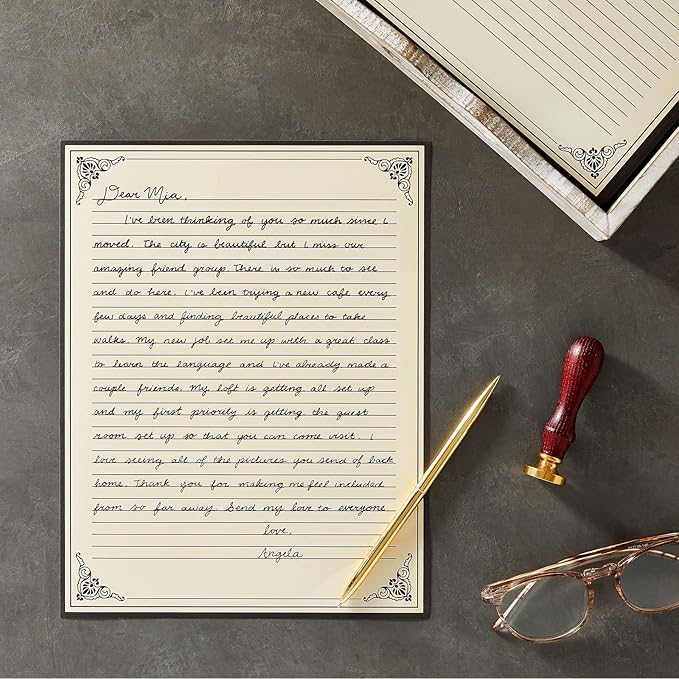 Dear Mia,
I've been thinking of you so much since I
moved. The city is beautiful but I miss our
amazing friend group. There is so much to see
and do here. I've been trying a new cafe every
few days and finding beautiful places to take
walks. My new job set me up with a great class
to learn the language and I've already made a
couple friends. My loft is getting all set up
and my first priority is getting the guest
room set up so that you can come visit. I
love seeing all of the pictures you send of back
home. Thank you for making me feel included
from so far away. Send my love to everyone
love,
Angela